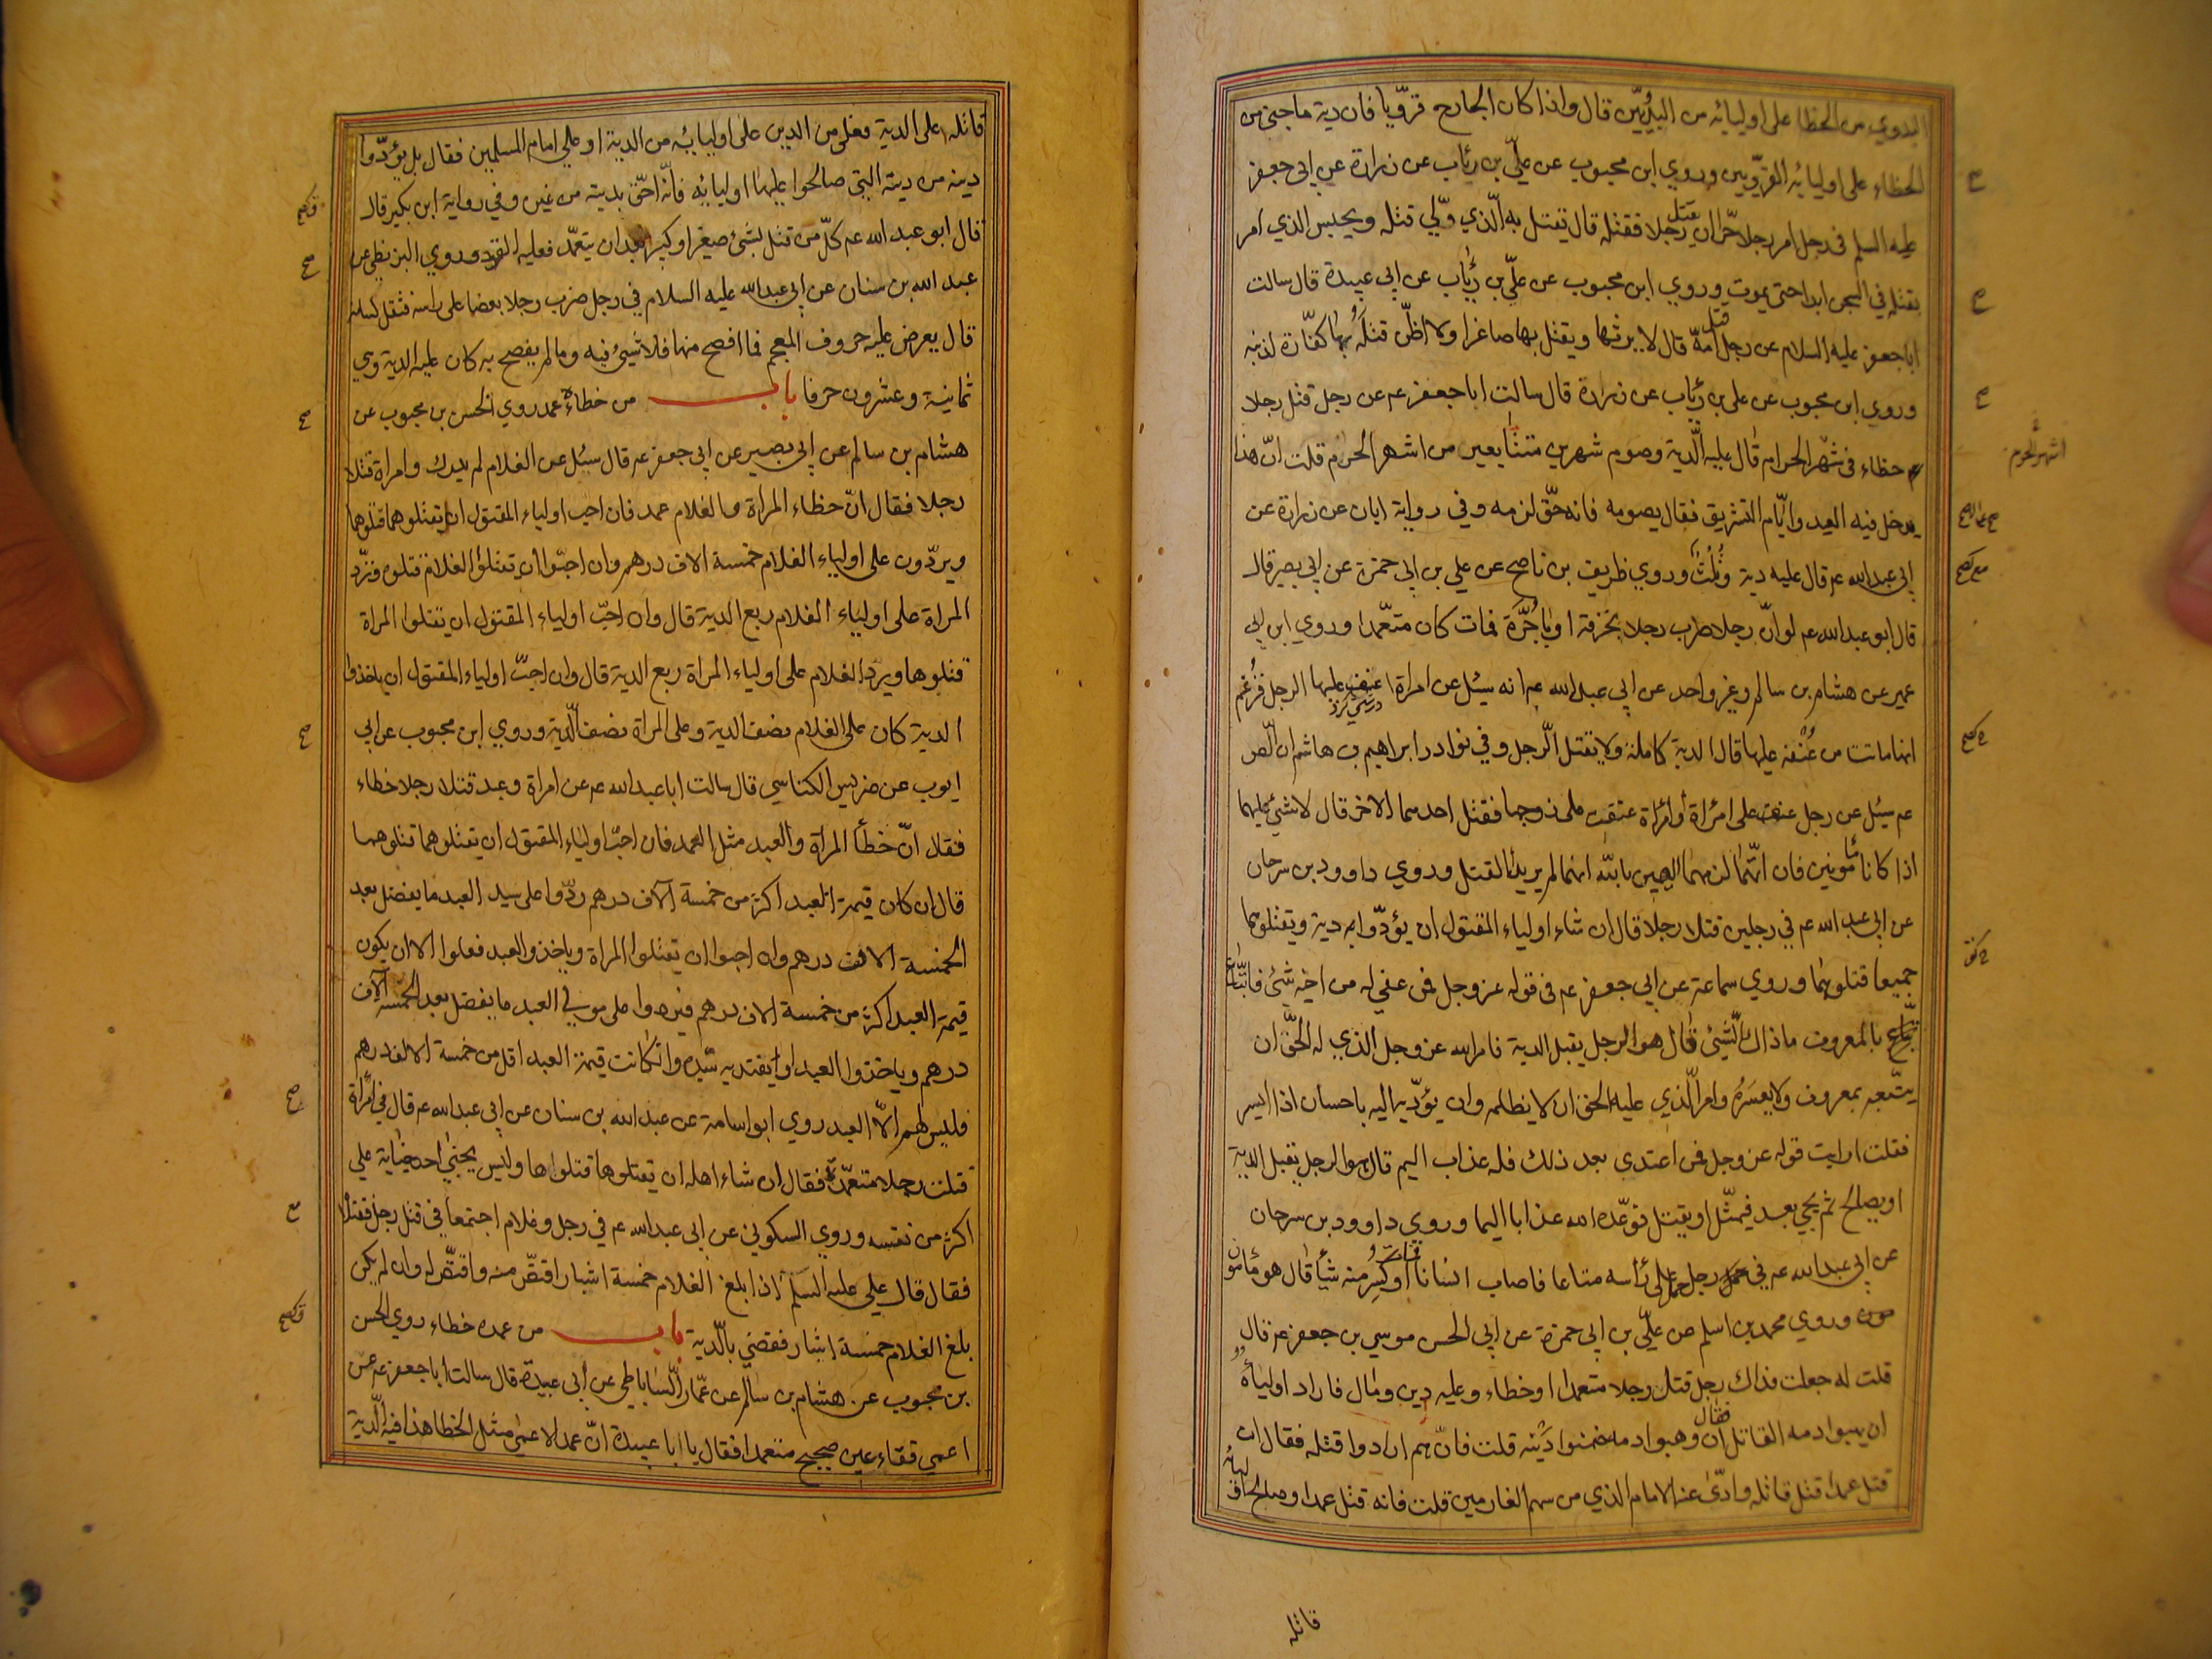 البدوي من الخطا على اوليائه من البدويين قال واذا كان الجارح قرويا فان دية ما جنى من
الخطاء على اوليائه القرويين وروي ابن محبوب عن علي بن رئاب عن زرارة عن ابي جعفر
عليه السلم في رجل امر رجلا حرا ان يقتل رجلا فقتله قال يقتل به الذي ولي قتله ويحبس الذي امر
بقتله في السجن ابدا حتى يموت وروي ابن محبوب عن علي بن رئاب عن ابي عبيدة قال سالت
ابا جعفر عليه السلام عن رجل قتل امه قال لا يرثها ويقتل بها صاغرا ولا اظن قتله بها كفارة لذنبه
وروي ابن محبوب عن علي بن رئاب عن زرارة قال سالت ابا جعفر عم عن رجل قتل رجلا
خطاء في شهر الحرام قال عليه الدية وصوم شهرين متتابعين من اشهر الحرم قلت ان هذا
اشهر الحرم
يدخل فيه العيد وايام التشريق فقال يصومه فانه حق لزمه وفي رواية ابان عن زرارة عن
ابي عبد الله عم قال عليه دية وثلث وروي ظريف بن ناصح عن علي بن ابي حمزة عن ابي بصير قال
قال ابو عبد الله عم لو ان رجلا ضرب رجلا بخزفة او باجرة فمات كان متعمدا وروي ابن ابي
عمير عن هشام بن سالم وغير واحد عن ابي عبد الله عم انه سئل عن امراة اعنف عليها الرجل فزعم
انها ماتت من عنفه عليها قال الدية كاملة ولا يقتل الرجل وفي نوادر ابراهيم ب هاشم ان الص
عم سئل عن رجل عنف على امراة او امراة عنفت على زوجها فقتل احدهما الاخر قال لا شيئ عليهما
اذا كانا مامونين فان اتهما لزمهما اليمين بالله انهما لم يريدا القتل وروي داوود بن سرحان
عن ابي عبد الله عم في رجلين قتلا رجلا قال ان شاء اولياء المقتول ان يؤدوا دية ويقتلوهما
جميعا قتلوهما وروي سماعة عن ابي جعفر عم في قوله عز وجل فمن عفي له من اخيه شئ فاتباع
بالمعروف ما ذاك الشيئ قال هو الرجل يقبل الدية فامر الله عز وجل الذي له الحق ان
يتبعه بمعروف ولا يعسره وامر الذي عليه الحق ان لا يظلمه وان يؤديه اليه باحسان اذا ايسر
فقلت ارايت قوله عز وجل فمن اعتدى بعد ذلك فله عذاب اليم قال هو الرجل يقبل الدية
او يصالح ثم يجي بعد فيمثل او يقتل فوعده الله عذابا اليما وروي داوود بن سرحان
عن ابي عبد الله عم في رجل حمل على راسه متاعا فاصاب انسانا فمات او كسر منه شيا قال هو مامون
وروي محمد بن اسلم عن علي بن ابي حمزة عن ابي الحسن موسي بن جعفر عم قال
قلت له جعلت فداك رجل قتل رجلا متعمدا او خطاء وعليه دين ومال فاراد اولياؤه
ان يهبوا دمه القاتل فقال ان وهبوا دمه ضمنوا دينه قلت فان هم ارادوا قتله فقال ان
قتل عمدا قتل قاتله وادى عنه الامام الدين من سهم الغارمين قلت فانه قتل عمدا وصالح اوليائه
قاتله
قاتله على الدية فعلى من الدين على اوليائه من الدية او على امام المسلمين فقال بل يؤدوا
دينه من ديته التي صالحوا عليها اوليائه فانه احق بديته من غيره وفي رواية ابن بكير قال
قال ابو عبد الله عم كل من قتل بشئ صغيرا وكبير بعد ان يتعمد فعليه القود وروي البزنطي عن
عبد الله بن سنان عن ابي عبد الله عليه السلام في رجل ضرب رجلا بعصا على راسه فثقل لسانه
قال يعرض عليه حروف المعجم فما افصح منها فلا شيئ فيه وما لم يفصح به كان عليه الدية وهي
ثمانية وعشرون حرفا باب من خطاؤه عمد روي الحسن بن محبوب عن
هشام بن سالم عن ابي بصير عن ابي جعفر عم قال سئل عن الغلام لم يدرك وامراة قتلا
رجلا فقال ان خطاء المراة والغلام عمد فان احب اولياء المقتول ان يقتلوهما قتلوهما
ويردون على اولياء الغلام خمسة الاف درهم وان احبوا ان يقتلوا الغلام قتلوه وترد
المراة على اولياء الغلام ربع الدية قال وان احب اولياء المقتول ان يقتلوا المراة
قتلوها ويرد الغلام على اولياء المراة ربع الدية قال وان احب اولياء المقتول ان ياخذوا
الدية كان على الغلام نصف الدية وعلى المراة نصف الدية وروي ابن محبوب عن ابي
ايوب عن ضريس الكناسي قال سالت ابا عبد الله عم عن امراة وعبد قتلا رجلا خطاء
فقال ان خطأ المراة والعبد مثل العمد فان احب اولياء المقتول ان يقتلوهما قتلوهما
قال ان كان قيمة العبد اكثر من خمسة آلاف درهم ردوا على سيد العبد ما يفضل بعد
الخمسة الاف درهم وان احبوا ان يقتلوا المراة وياخذوا العبد فعلوا الا ان يكون
قيمة العبد اكثر من خمسة الاف درهم فيردوا على مولى العبد ما يفضل بعد الخمسة آلاف
درهم وياخذوا العبد او يفتديه سيده وان كانت قيمة العبد اقل من خمسة الاف درهم
فليس لهم الا العبد روي ابو اسامة عن عبد الله بن سنان عن ابي عبد الله عم قال في امراة
قتلت رجلا متعمدة فقال ان شاء اهله ان يقتلوها قتلوها وليس يجني احد جناية على
اكثر من نفسه وروي السكوني عن ابي عبد الله عم في رجل وغلام اجتمعا في قتل رجل فقتلا
فقال قال علي عليه السلم اذا بلغ الغلام خمسة اشبار اقتص منه واقتص له وان لم يكن
بلغ الغلام خمسة اشبار فقضي بالدية باب من عمده خطاء روي الحسن
بن محبوب عن هشام بن سالم عن عمار الساباطي عن ابي عبيدة قال سالت ابا جعفر عم عن
اعمي فقاء عين صحيح متعمدا فقال يا ابا عبيدة ان عمد الاعمى مثل الخطا هذا فيه الدية